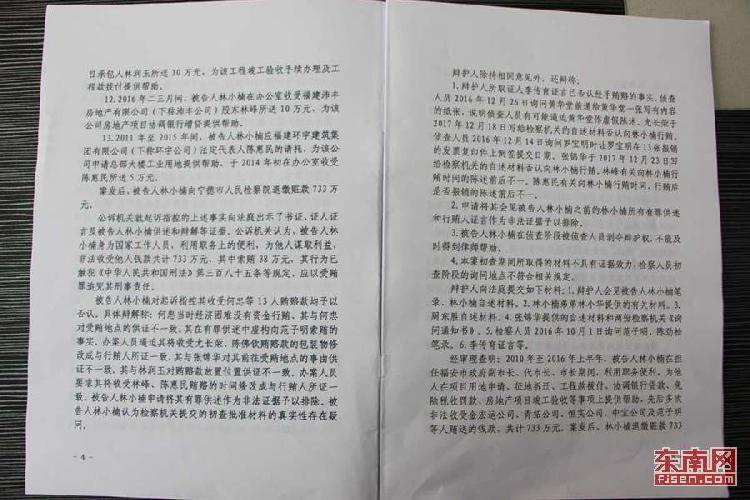 目承包人林润玉所送 10 万元，为该工程竣工验收手续办理及工
程款拨付提供帮助。
12、2016 年二三月间，被告人林小楠在办公室收受福建沛丰
房地产有限公司（下称沛丰公司）股东林峰所送 10 万元，为该
公司房地产项目协调银行增贷提供帮助。
13、2011 年至 2015 年间，被告人林小楠应福建环宇建筑集
团有限公司（下称环宇公司）法定代表人陈惠民的请托，为该公
司申请总部大楼工业用地提供帮助，于 2014 年初在办公室收受
陈惠民所送 5 万元。
案发后，被告人林小楠向宁德市人民检察院退缴赃款 733 万
元。
公诉机关就起诉指控的上述事实向法庭出示了书证、证人证
言及被告人林小楠供述和辩解等证据。公诉机关认为，被告人林
小楠身为国家工作人员，利用职务上的便利，为他人谋取利益，
非法收受他人钱款共计 733 万元，其中索贿 38 万元，其行为已
触犯《中华人民共和国刑法》第三百八十五条等规定，应以受贿
罪追究其刑事责任。
被告人林小楠对起诉指控其收受何忠等 13 人贿赂款均予以
否认。具体辩解称：何忠当时经济困难没有资金行贿，其与何忠
对受贿地点的供证不一致，其在有罪供述中虚构向范子明索贿的
事实，办案人员通过其将收受尤长荣、陈佛钦贿赂款的包装物修
改成与行贿人所证一致，其与张锦华对其前往受贿地点的事由供
证不一致，其与林润玉对贿赂款放置位置供证不一，办案人员
要求其将收受林峰、陈惠民贿赂的时间修改成与行贿人所证一
致。被告人林小楠申请将其有罪供述作为非法证据予以排除。被
告人林小楠认为检察机关提交的初查批准材料的真实性存在疑
问。
- 4 -
辩护人除持相同意见外，还辩称：
1、辩护人所取证人李传育证言已否认经手贿赂的事实，侦查
人员 2016 年 12 月 26 日询问黄华堂前递给黄华堂一张写有内容
的纸张，说明侦查人员有可能通过黄华堂作虚假陈述。尤长荣于
2017 年 12 月 18 日写给检察机关的自述材料否认向林小楠行贿，
侦查人员 2016 年 12 月 14 日询问罗宝明时让罗宝明在 13 张报销
的发票复印件上倒签提交日期。张锦华于 2017 年 12 月 23 日写
给检察机关的自述材料否认向林小楠行贿。林峰有关向林小楠行
贿时间的陈述前后不一。陈惠民有关向林小楠行贿时间、行贿后
是否报销的陈述前后不一。
2、申请将其会见被告人林小楠之前的林小楠所有有罪供述
和行贿人证言作为非法证据予以排除。
3、被告人林小楠在侦查阶段被侦查人员剥夺辩护权，不能及
时得到律师帮助。
4、本案初查期间所取得的材料不具有证据效力，检察人员初
查阶段的询问地点不符合相关规定。
辩护人向法庭提交如下材料：1、辩护人会见被告人林小楠笔
录、林小楠自述材料。2、林小楠弟弟林小华提供的有关材料。3、
周东雁自述材料。4、张锦华提供的自述材料和两份检察机关《询
问通知书》。5、检察人员 2016 年 10 月 1 日询问范子明、陈劲松
笔录。6、李传育证言等。
经审理查明：2010 年至 2016 年上半年，被告人林小楠在担
任福安市政府副市长、代市长、市长期间，利用职务便利，为他
人在项目用地申请、征地拆迁、工程款拨付、协调银行贷款、免
除税收罚款、房地产项目竣工验收等事项上提供帮助，先后多次
非法收受金宏运公司、青拓公司、恒实公司、申宝公司及范子明
等人贿送的钱款，共计 733 万元。案发后，林小楠退缴赃款 733
东南网
Fjsen.com